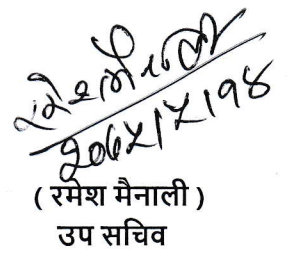 रमेश मैनाली
२०७५।५।१४
( रमेश मैनाली )
उप सचिव